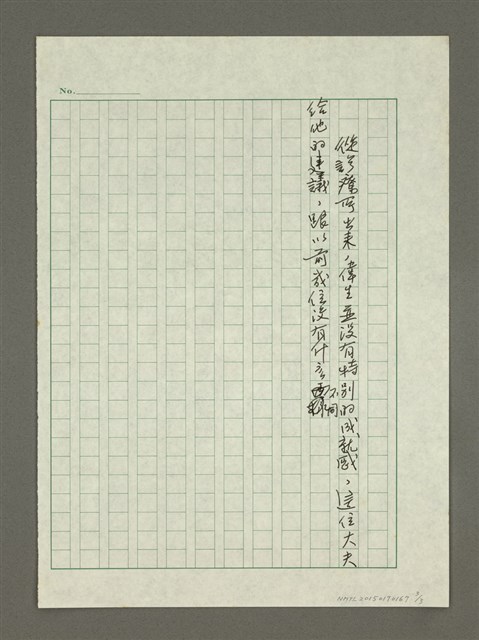 No.
從診療所出來，偉生並沒有特別的成就感，這位大夫
給他的建議，跟以前幾位沒有什么不同
NMTL20150170167 3/3